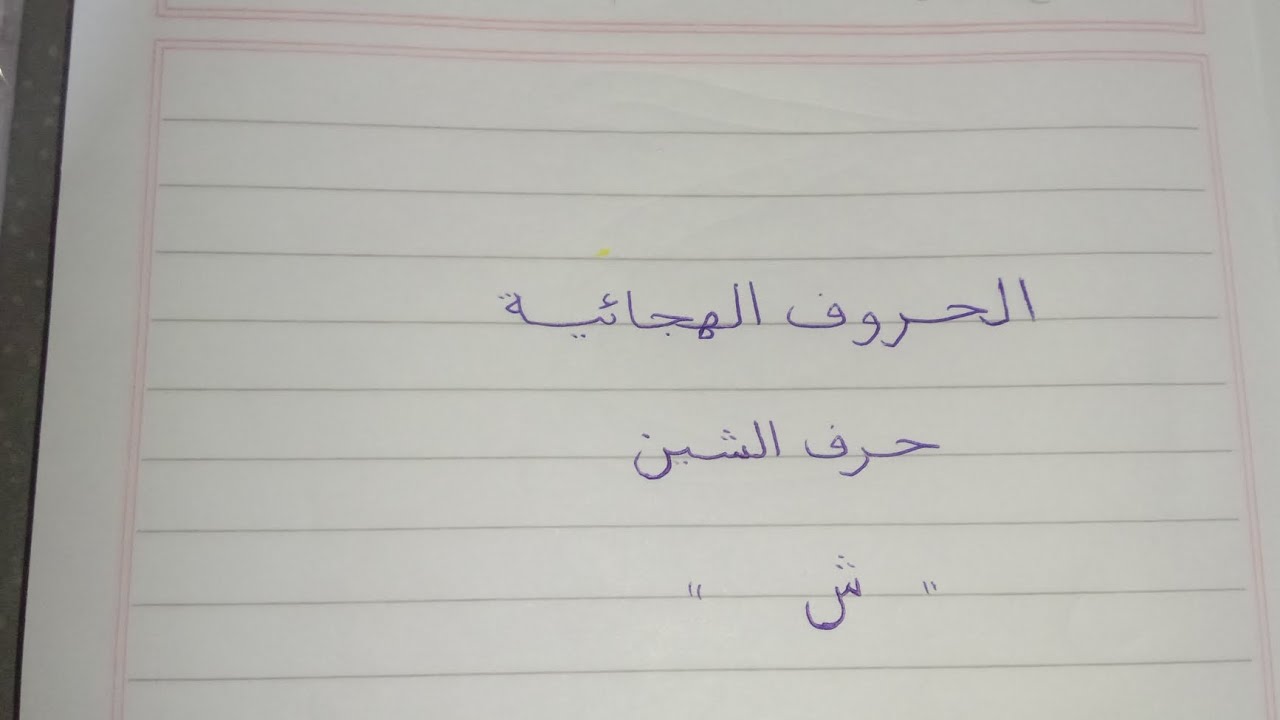 الحروف الهجائية
حرف الشين
" ش "